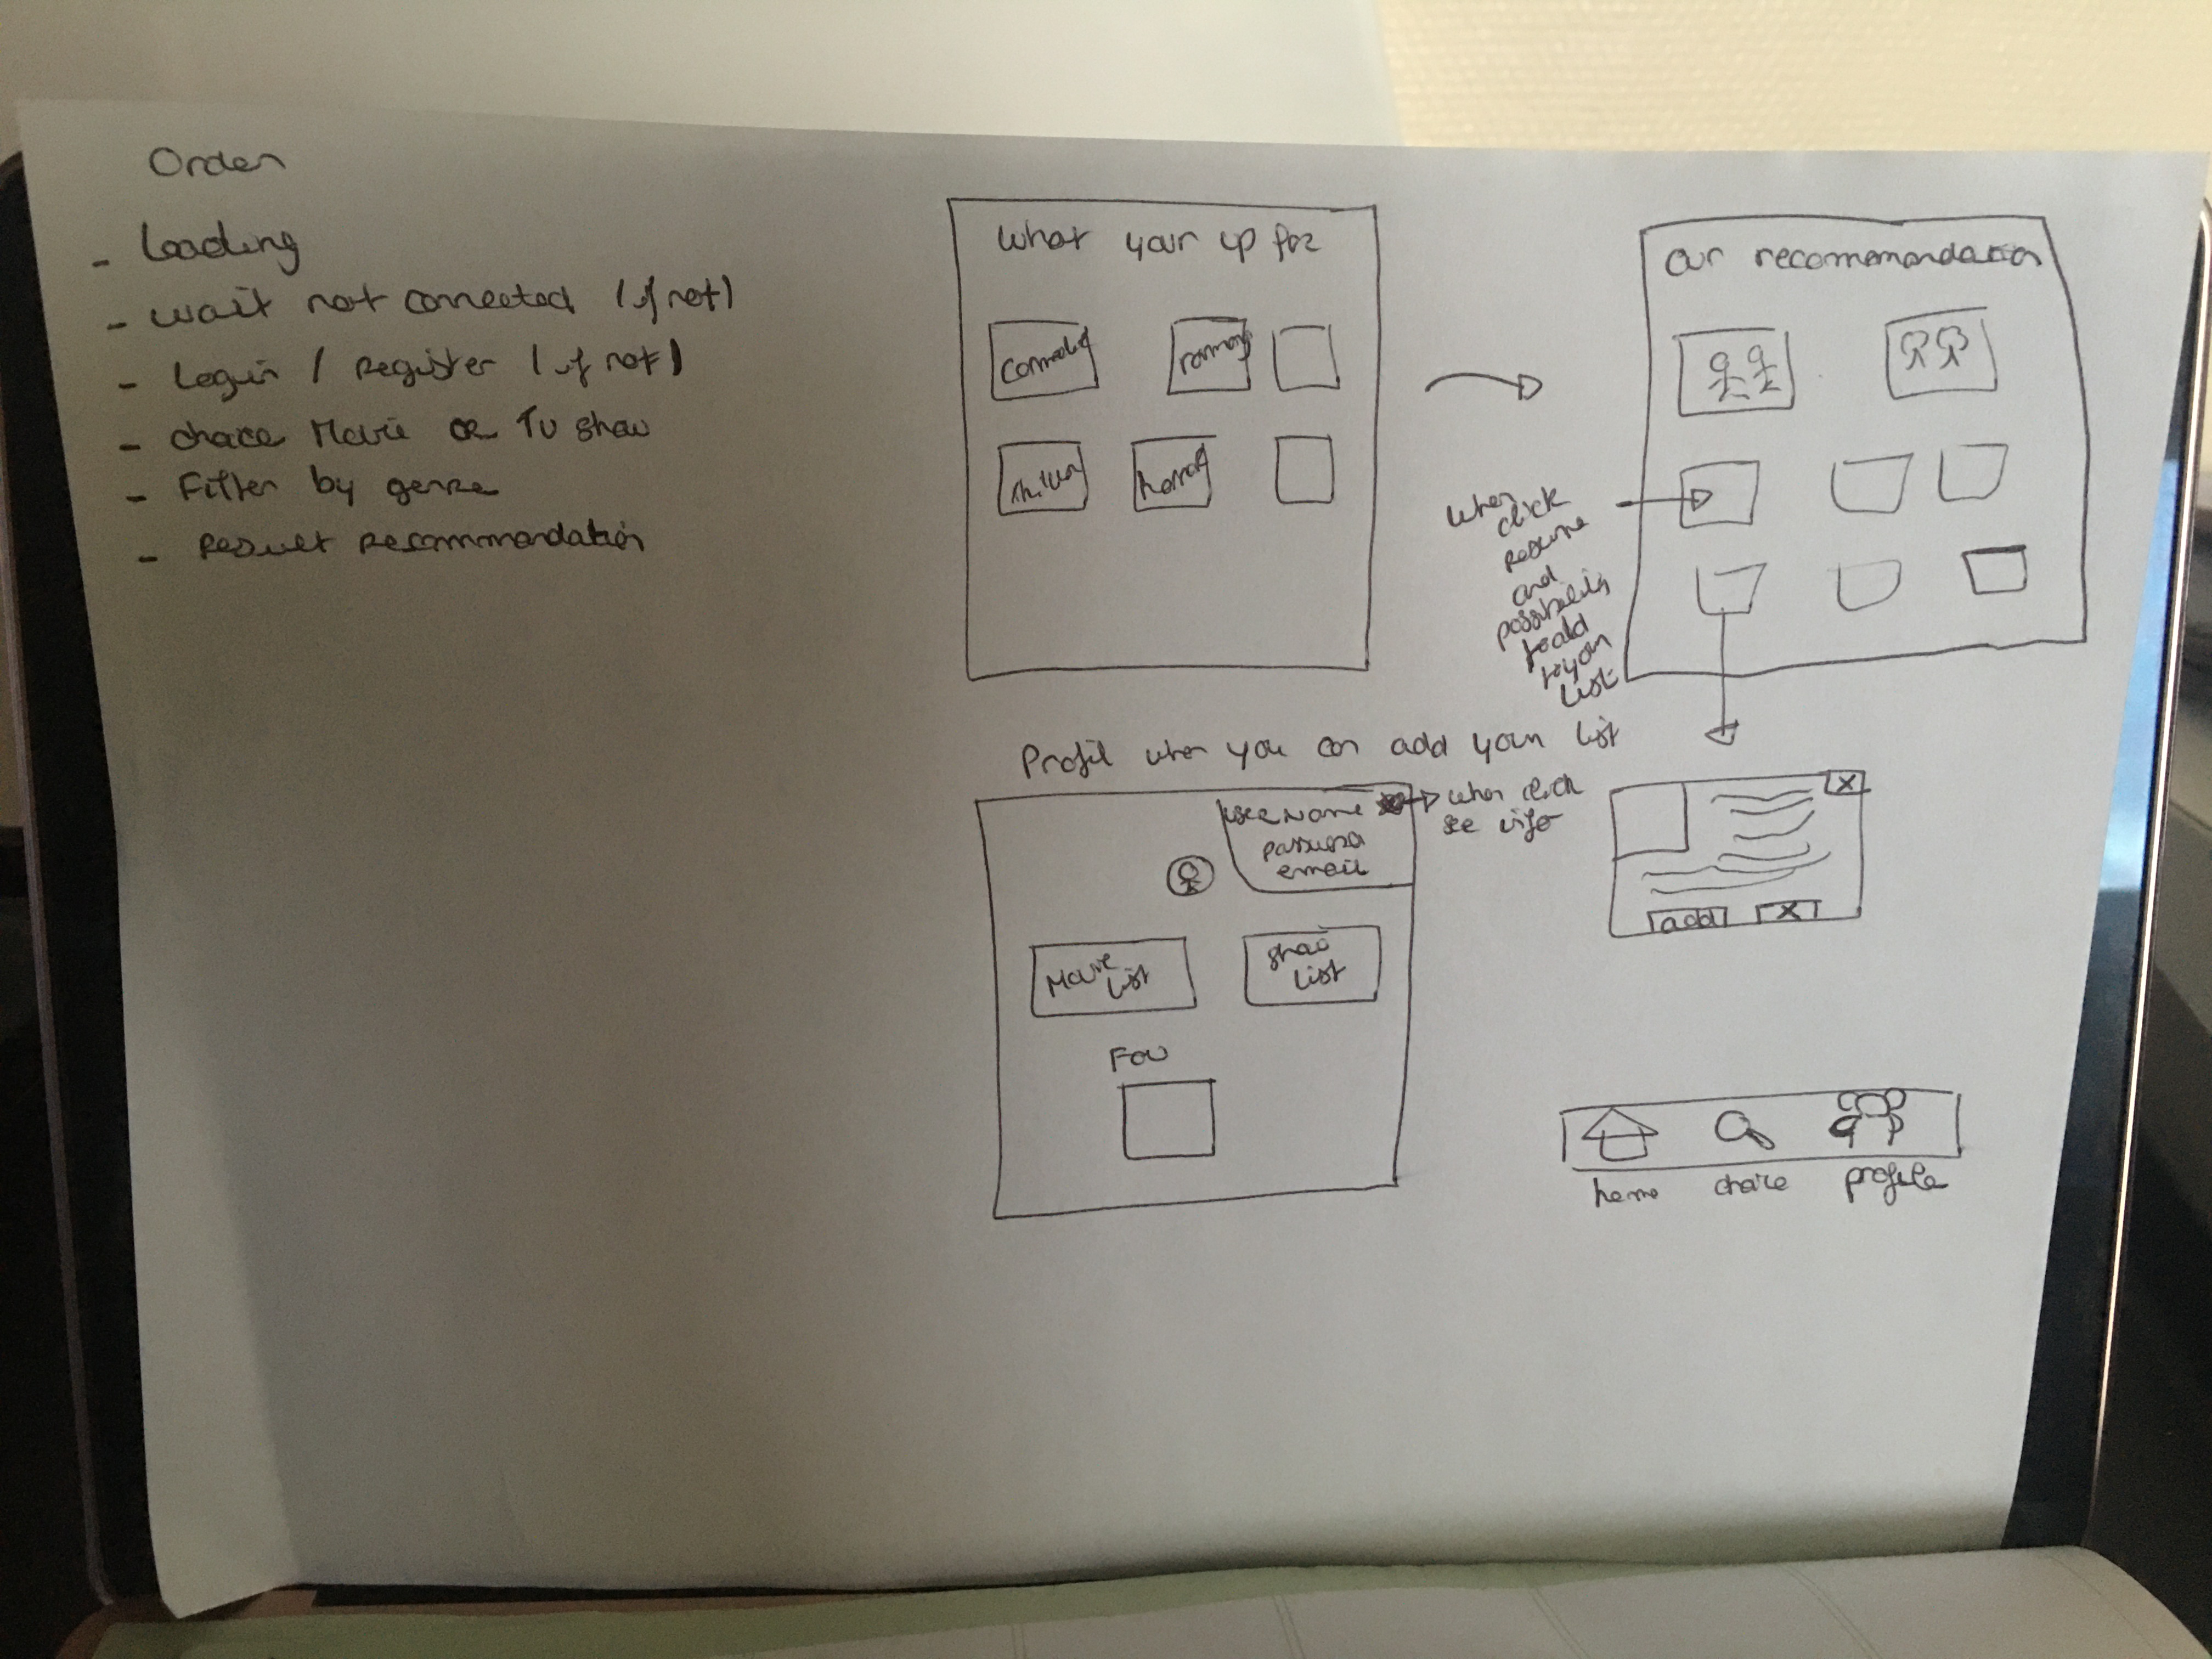 Order
- Loading
- wait not connected (if not)
- Login / Register (if not)
- choice Movie or TV show
- Filter by genre
- Result recommandation
What your up for
comedy
romance
thriller
horror
our recommandation
when
click
resume
and
possibility
to add
to your
list
Profil when you can add your list
username
password
email
when click
see info
Movie
list
show
list
Fav
X
add
X
home
choice
profile